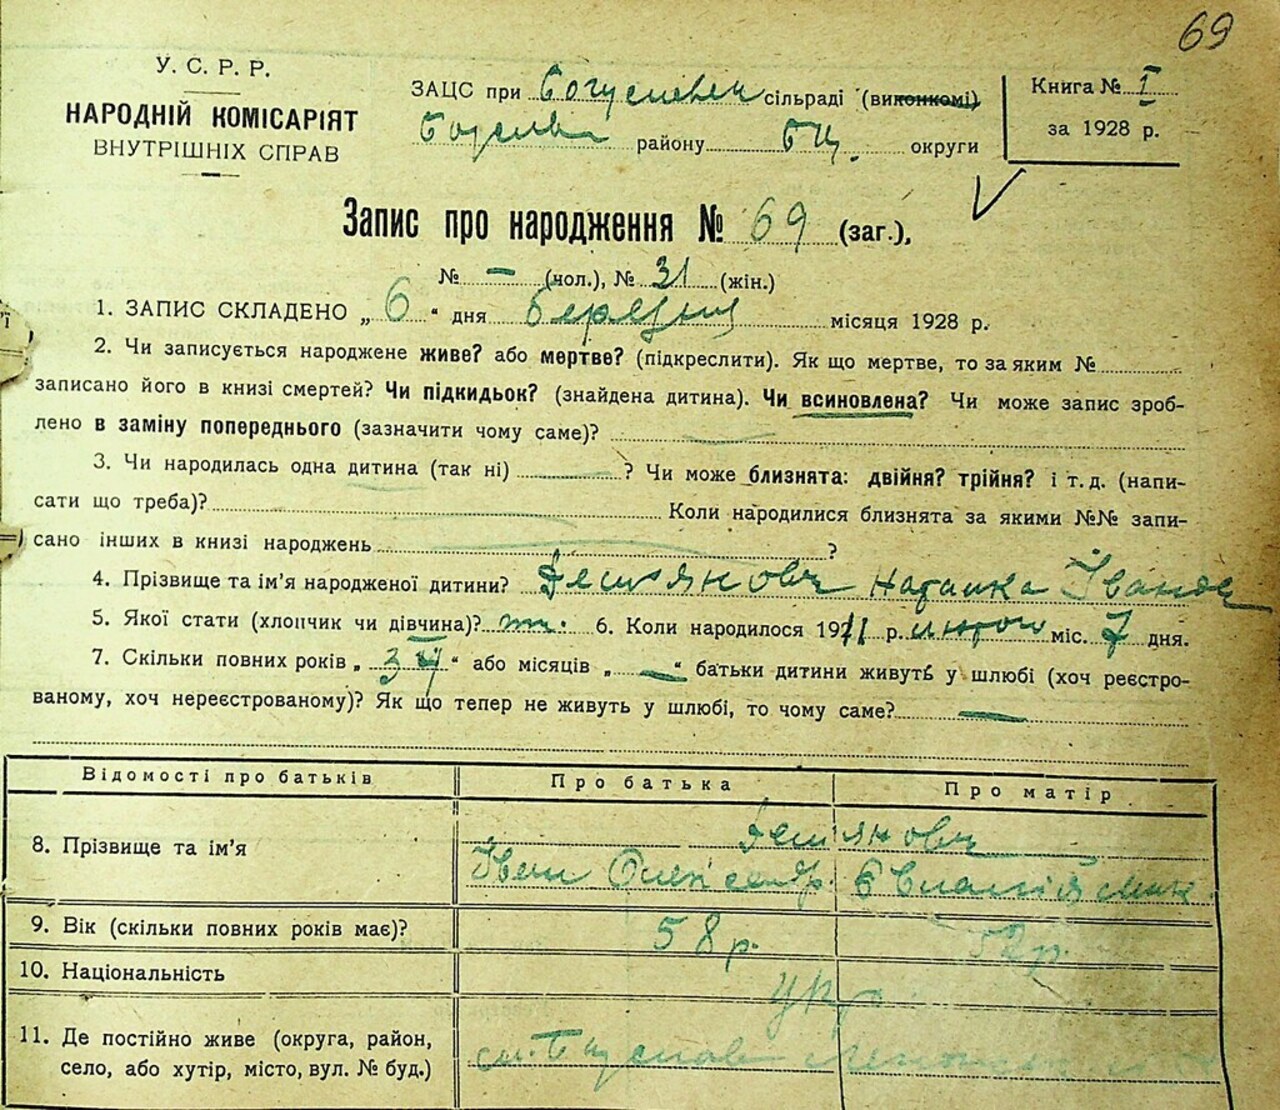 69
У. С. Р. Р.
НАРОДНІЙ КОМІСАРІЯТ
ВНУТРІШНІХ СПРАВ
ЗАЦС при сільраді (виконкомі)
району БЦ. округи
Книга № I
за 1928 р.
Запис про народження № 69 (заг.),
№ – (чол.), № 31 (жін.)
1. ЗАПИС СКЛАДЕНО „ 6 “ дня березня місяця 1928 р.
2. Чи записується народжене живе? або мертве? (підкреслити). Як що мертве, то за яким №
записано його в книзі смертей? Чи підкидьок? (знайдена дитина). Чи всиновлена? Чи може запис зроб-
лено в заміну попереднього (зазначити чому саме)?
3. Чи народилась одна дитина (так ні) ? Чи може близнята: двійня? трійня? і т. д. (напи-
сати що треба)? Коли народилися близнята за якими №№ запи-
сано інших в книзі народжень ?
4. Прізвище та ім’я народженої дитини? Наталка
5. Якої стати (хлопчик чи дівчина)? 6. Коли народилося 1911 р. лютого міс. 7 дня.
7. Скільки повних років „ “ або місяців „ — “ батьки дитини живуть у шлюбі (хоч реєстро-
ваному, хоч нереєстрованому)? Як що тепер не живуть у шлюбі, то чому саме? —
Відомості про батьків Про батька Про матір
8. Прізвище та ім’я
Іван Олександр.
9. Вік (скільки повних років має)? 58 р. 52 р.
10. Національність укр.
11. Де постійно живе (округа, район,
село, або хутір, місто, вул. № буд.)